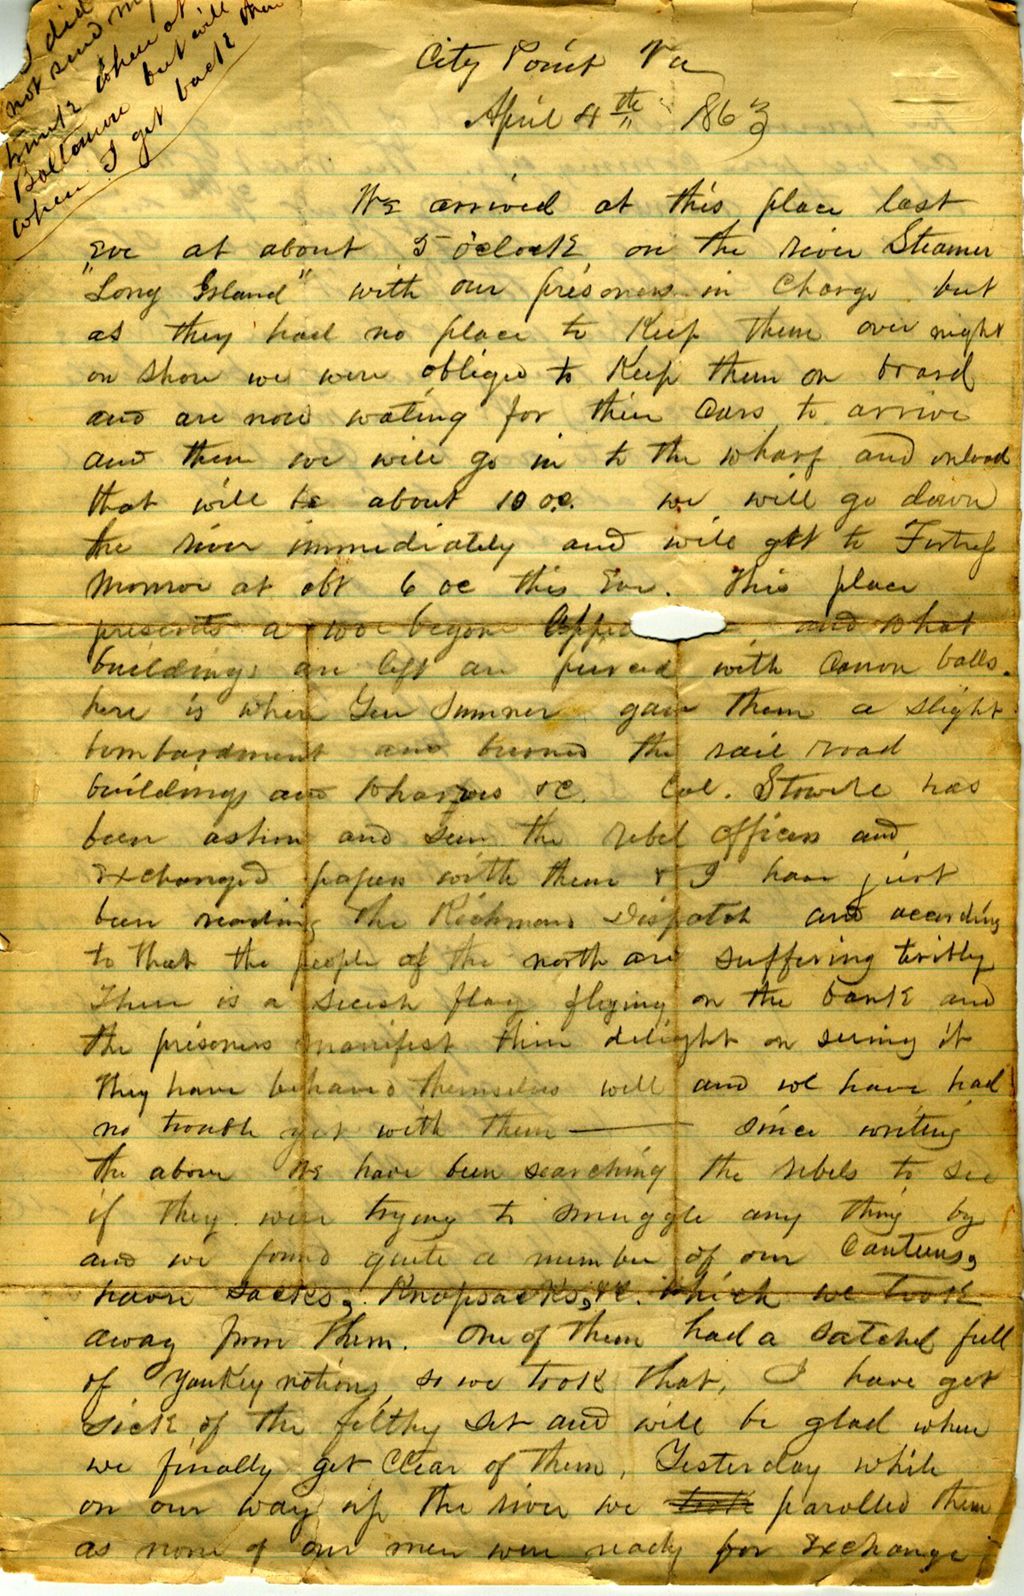 I did
not send my
trunk when at
Boltomore but will
when I get back then
City Point Va
April 4th 1863
We arrived at this place last
Eve at about 5 oclock on the river Steamer
"Long Island" with our prisoners in Charge but
as they had no place to Keep them over night
on shore we were obliged to Keep them on board
and are now wating for their Cars to arrive
and then we will go in to the wharf and unload
that will be about 10 oc. we will go down
the river immediately and will get to Fortress
Monroe at abt 6 oc this Eve. This place
presents a woe begone and what
buildings are left are pierced with Canon balls.
here is where Gen Sumner gave them a slight
bombardment and burned the rail road
buildings and wharves &c. Col. has
been ashore and seen the rebel officers and
exchanged papers with them & I have just
been reading the Richmond Dispatch and according
to that the people of the north are suffering teribly
There is a secesh flag flying on the bank and
the prisoners manifest their delight on seeing it
They have behaved themselves well and we have had
no trouble yet with them — since writing
the above We have been searching the rebels to see
if they were trying to smuggle any thing by
and we found quite a number of our Canteens,
haver sacks, Knapsacks, &c. which we took
away from them. One of them had a satchel full
of Yankey notions so we took that, I have got
sick of the filthy set and will be glad when
we finally get Clear of them. Yesterday while
on our way up the river we took parolled them
as none of our men were ready for exchange